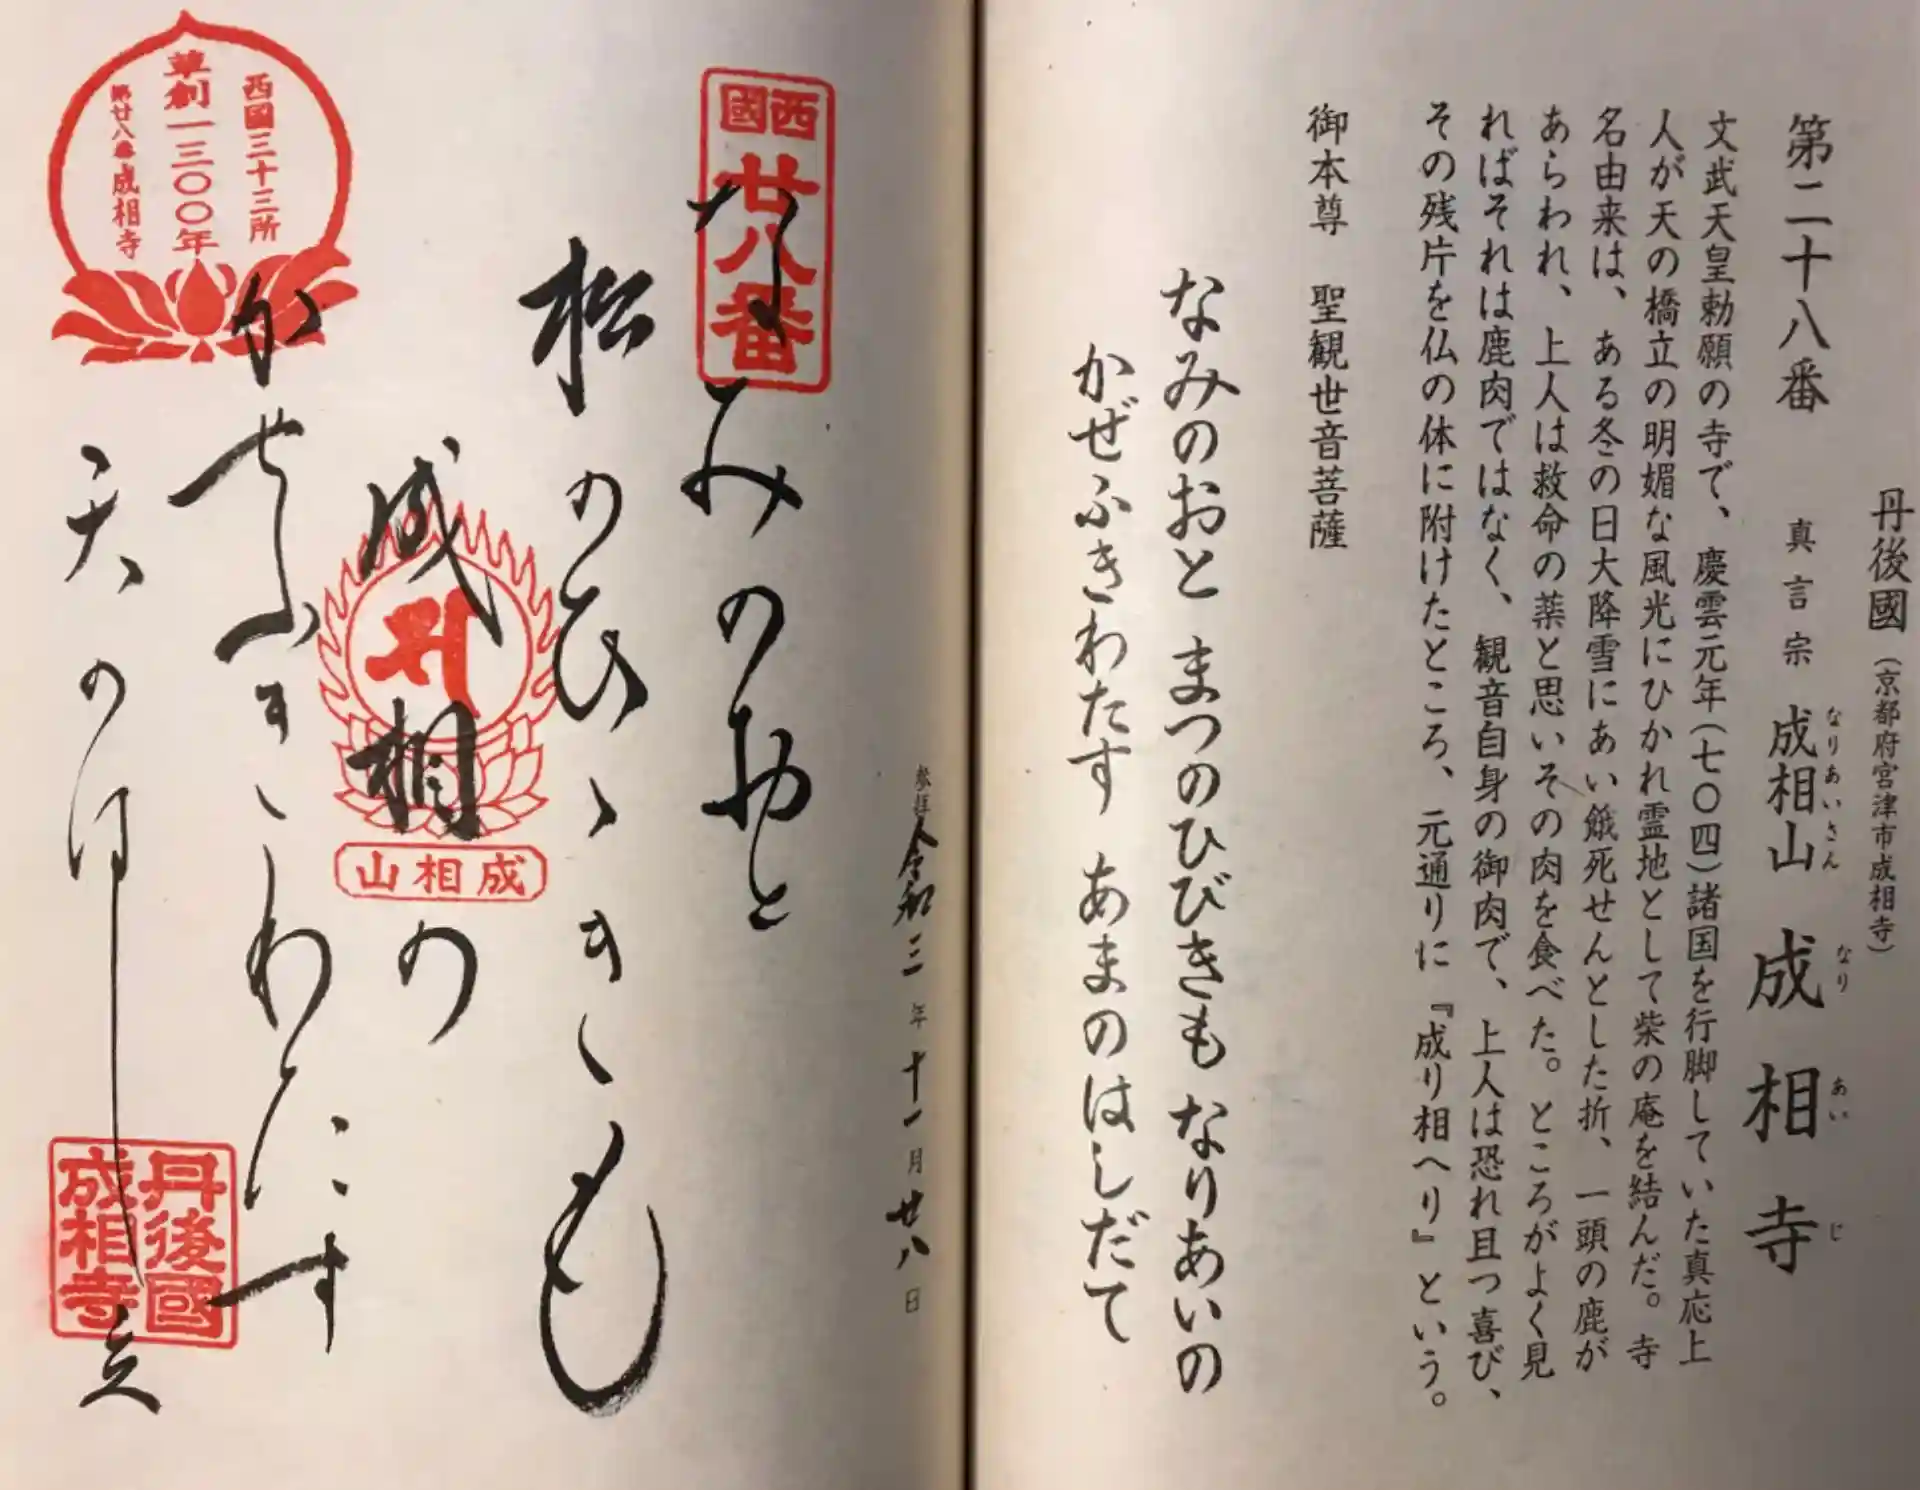 丹後國(京都府宮津市成相寺)
第二十八番 真言宗 成相山 成相寺
なりあいさん なりあいじ
文武天皇勅願の寺で、慶雲元年(七〇四)諸国を行脚していた真応上
人が天の橋立の明媚な風光にひかれ霊地として柴の庵を結んだ。寺
名由来は、ある冬の日大降雪にあい餓死せんとした折、一頭の鹿が
あらわれ、上人は救命の薬と思いその肉を食べた。ところがよく見
ればそれは鹿肉ではなく、観音自身の御肉で、上人は恐れ且つ喜び、
その残片を仏の体に附けたところ、元通りに『成り相へり』という。
御本尊 聖観世音菩薩
なみのおと まつのひびきも なりあいの
かぜふきわたす あまのはしだて
参拝 令和三年十一月廿八日
西國
廿八番
なみのおと
松のひゝきも
成相の
成相山
かせふきわたす
天のはし立
西國三十三所
草創一三〇〇年
第廿八番成相寺
丹後國
成相寺